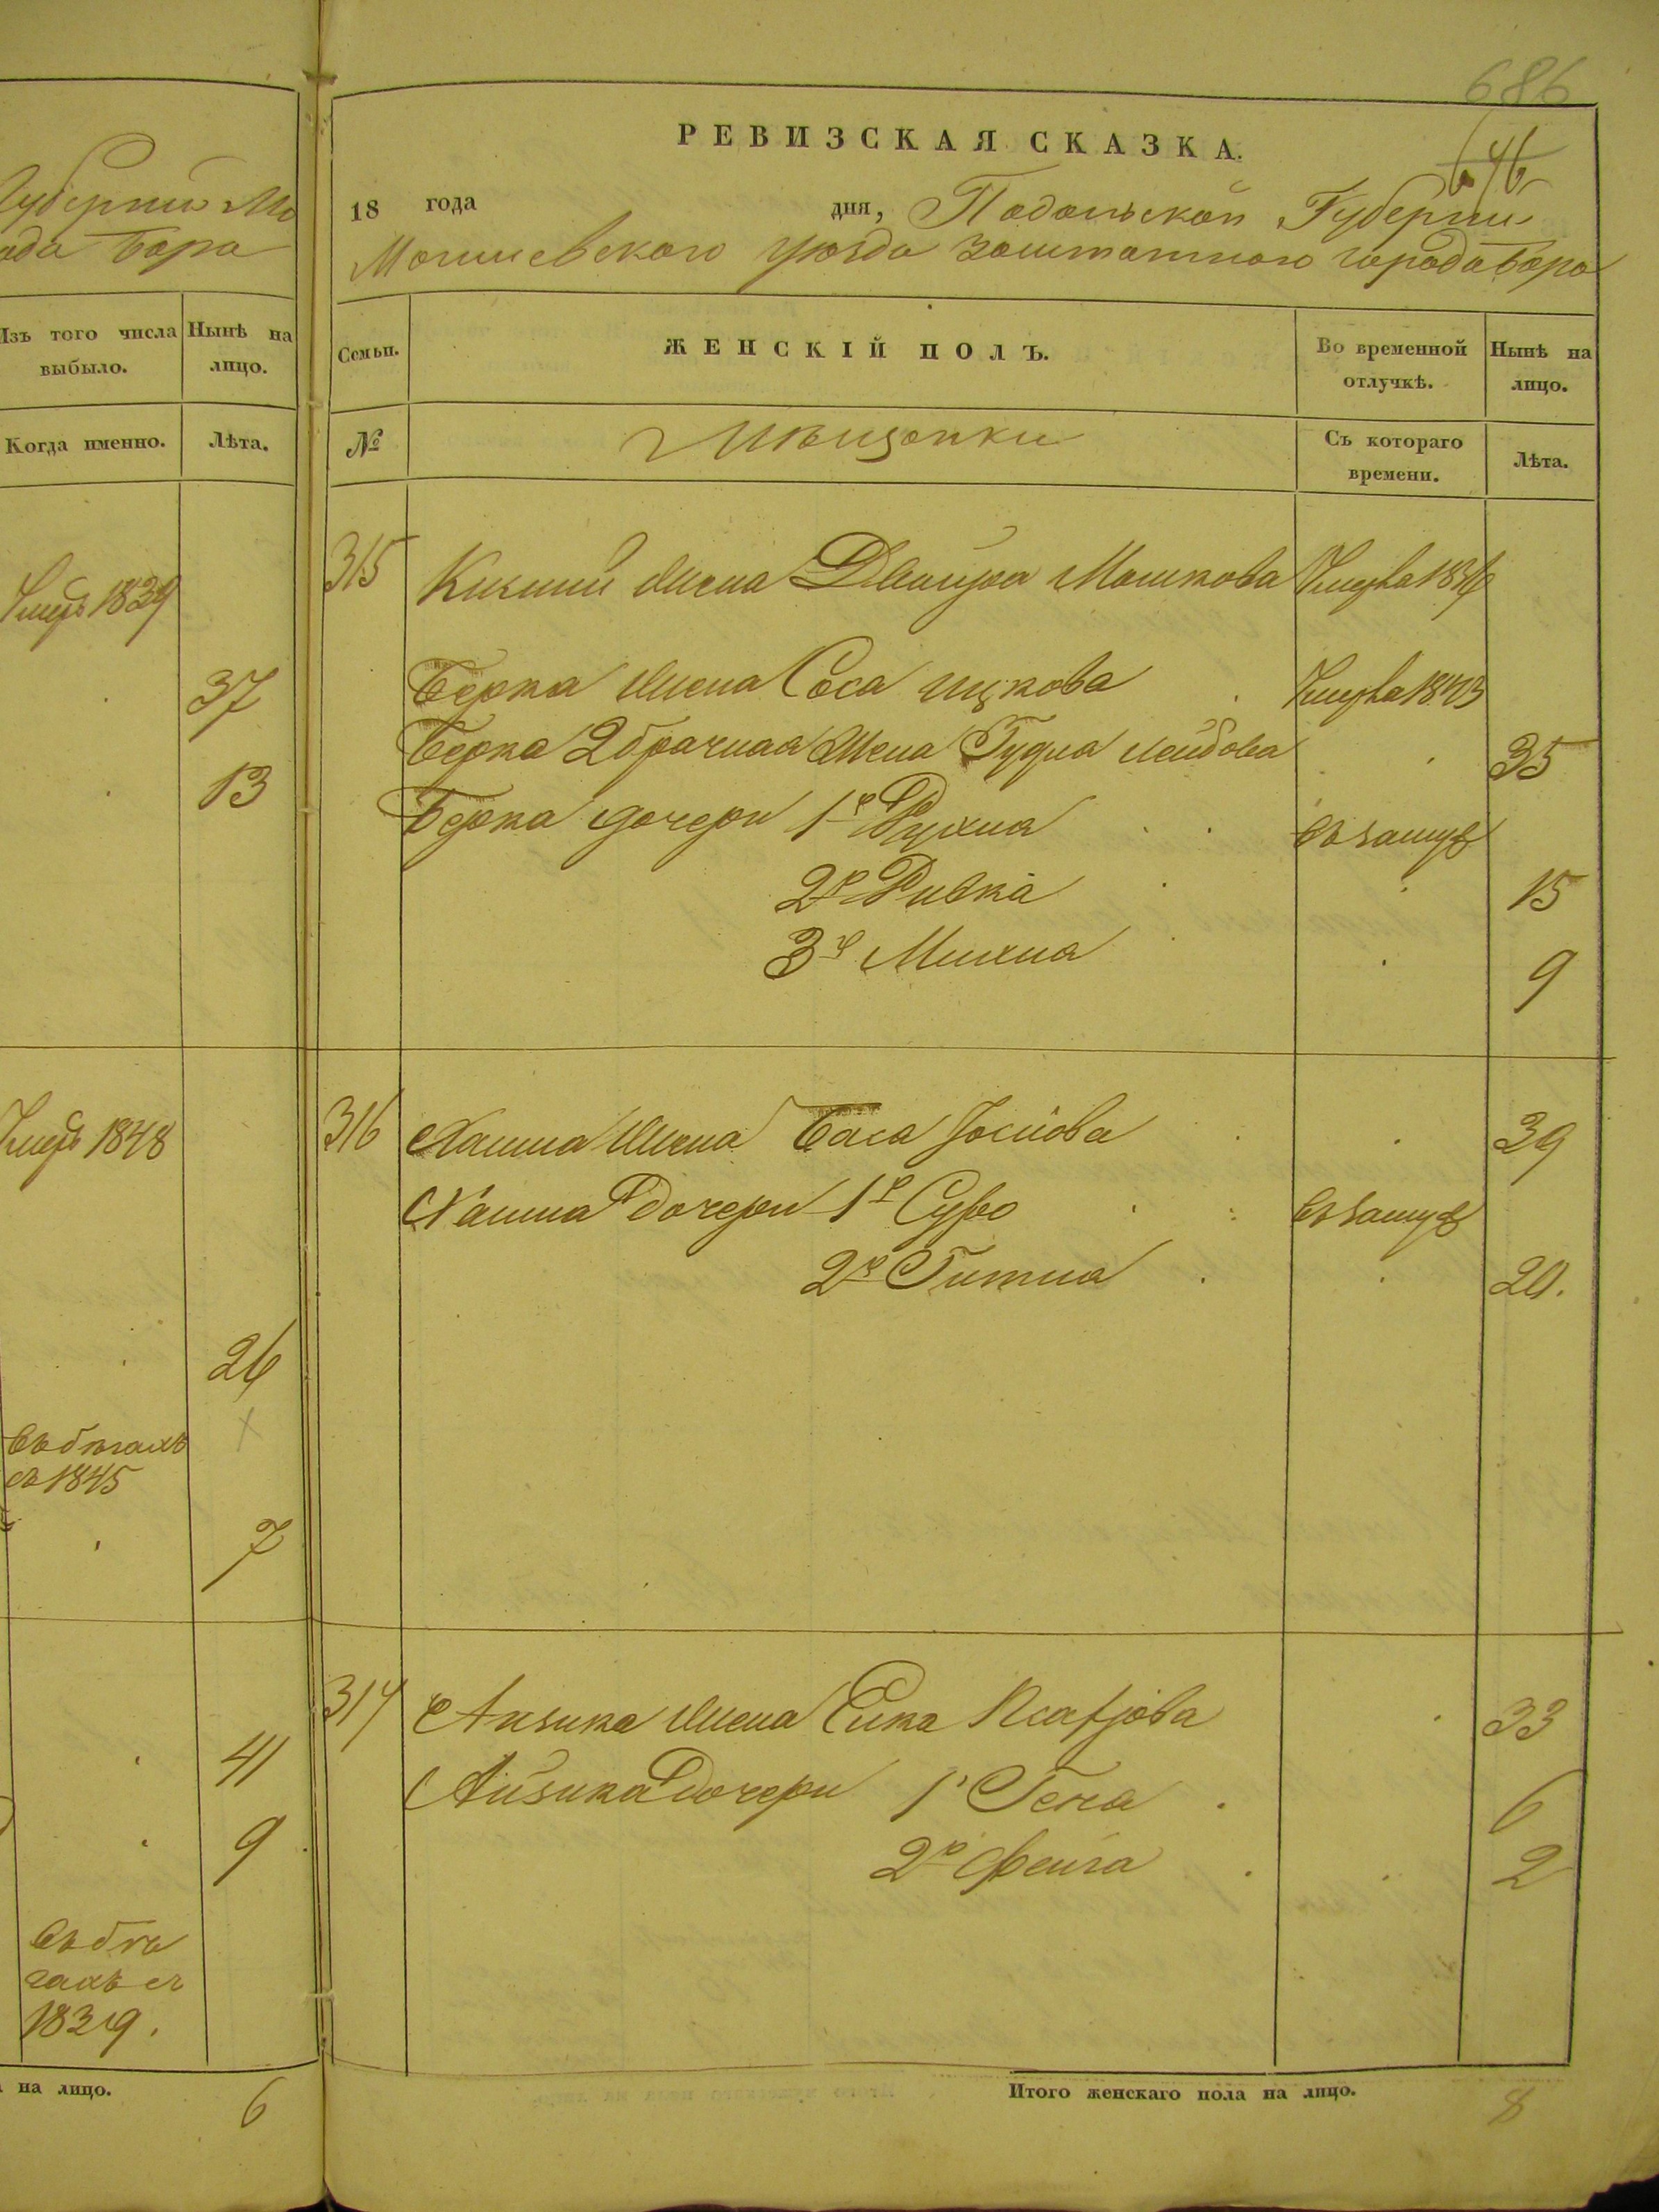 Губерніи Мо
ода Бара
Изъ того числа выбыло.
Нынѣ на лицо.
Когда именно.
Лѣта.
1839
37
13
1848
26
Въ бѣгахъ
съ 1845
7
41
9
Въ бѣ
гахъ съ
1839.
на лицо.
6
686
РЕВИЗСКАЯ СКАЗКА.
646
18 года дня, Подольской Губерніи
Могилевского уѣзда заштатного города Бара
Семьи.
ЖЕНСКІЙ ПОЛЪ.
Во временной отлучкѣ.
Нынѣ на лицо.
№
Мѣщанки
Съ котораго времени.
Лѣта.
315 жена Двойра Мошкова
Берка жена Сося Ицкова 1843
Берка 2 брачная жена Гудля Лейбова 35
Берка дочери 1я Рухля Въ замуж
2я Ривка 15
3я Михля 9
316 Хаима жена Бася Іосіова 39
Хаима дочери 1я Сура Въ замуж
2я Гитля 20.
317 Айзика жена Ейка 33
Айзика дочери 1 Геня 6
2я Фейга 2
Итого женскаго пола на лицо. 8